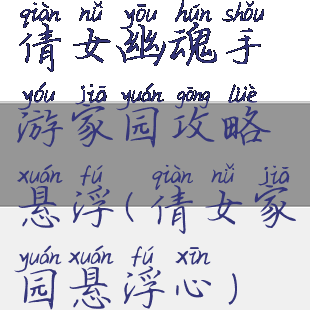 qiàn nǚ yōu hún shǒu
倩女幽魂手
yóu jiā yuán gōng lüè
游家园攻略
xuán fú qiàn nǚ jiā
悬浮(倩女家
yuán xuán fú xīn
园悬浮心)